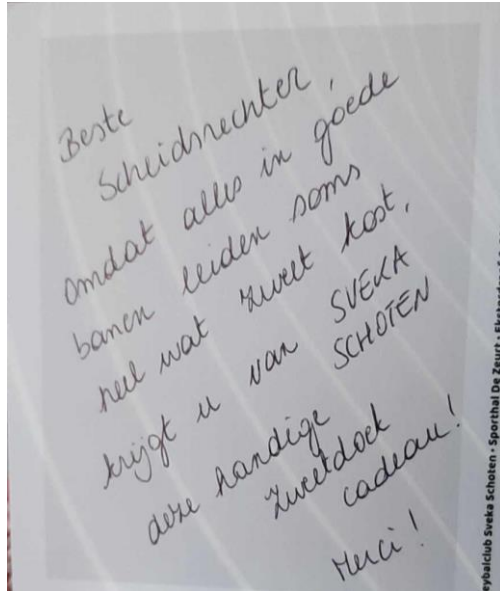 Beste
Scheidsrechter,
omdat alles in goede
banen leiden soms
heel wat zweet kost,
krijgt u van SVEKA
SCHOTEN
deze handige
zweetdoek
cadeau!
Merci!
eybalclub Sveka Schoten • Sporthal De Zeurt •